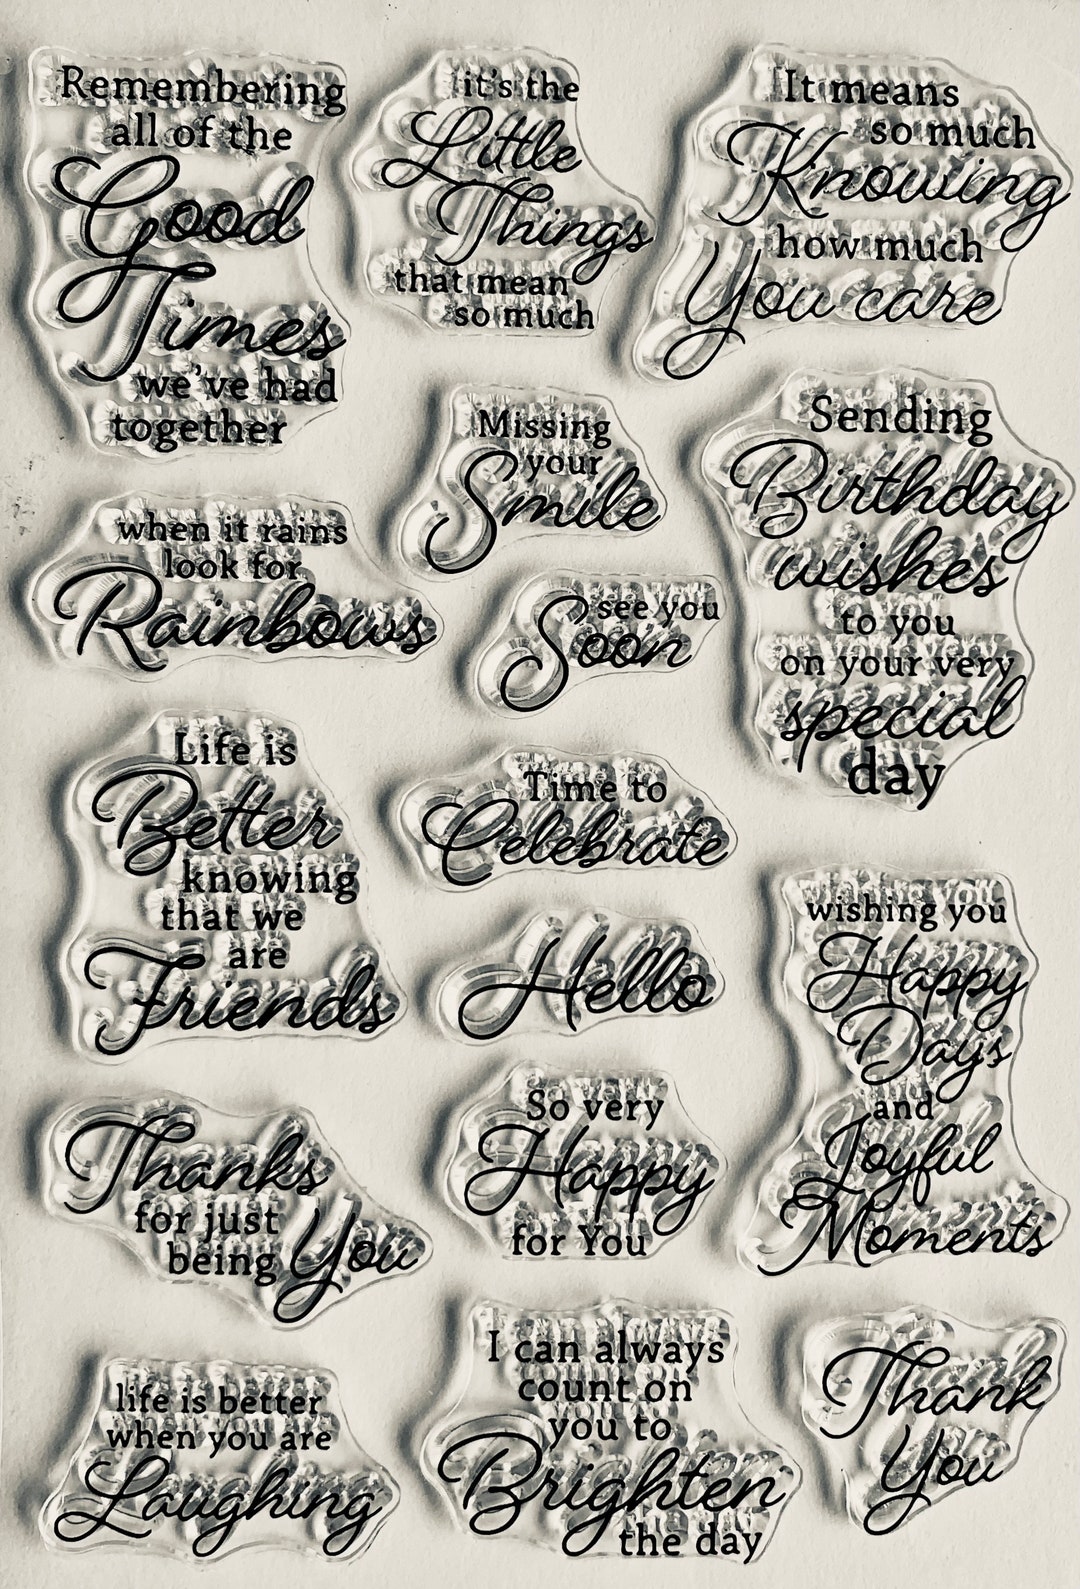 Remembering
all of the
Good
Times
we've had
together
it's the
Little
Things
that mean
so much
It means
so much
Knowing
how much
You care
Missing
your
Smile
Sending
Birthday
wishes
to you
on your very
special
day
when it rains
look for
Rainbows
see you
Soon
Life is
Better
knowing
that we
are
Friends
Time to
Celebrate
Hello
wishing you
Happy
Days
and
Joyful
Moments
Thanks
for just
being You
So very
Happy
for You
life is better
when you are
Laughing
I can always
count on
you to
Brighten
the day
Thank
You